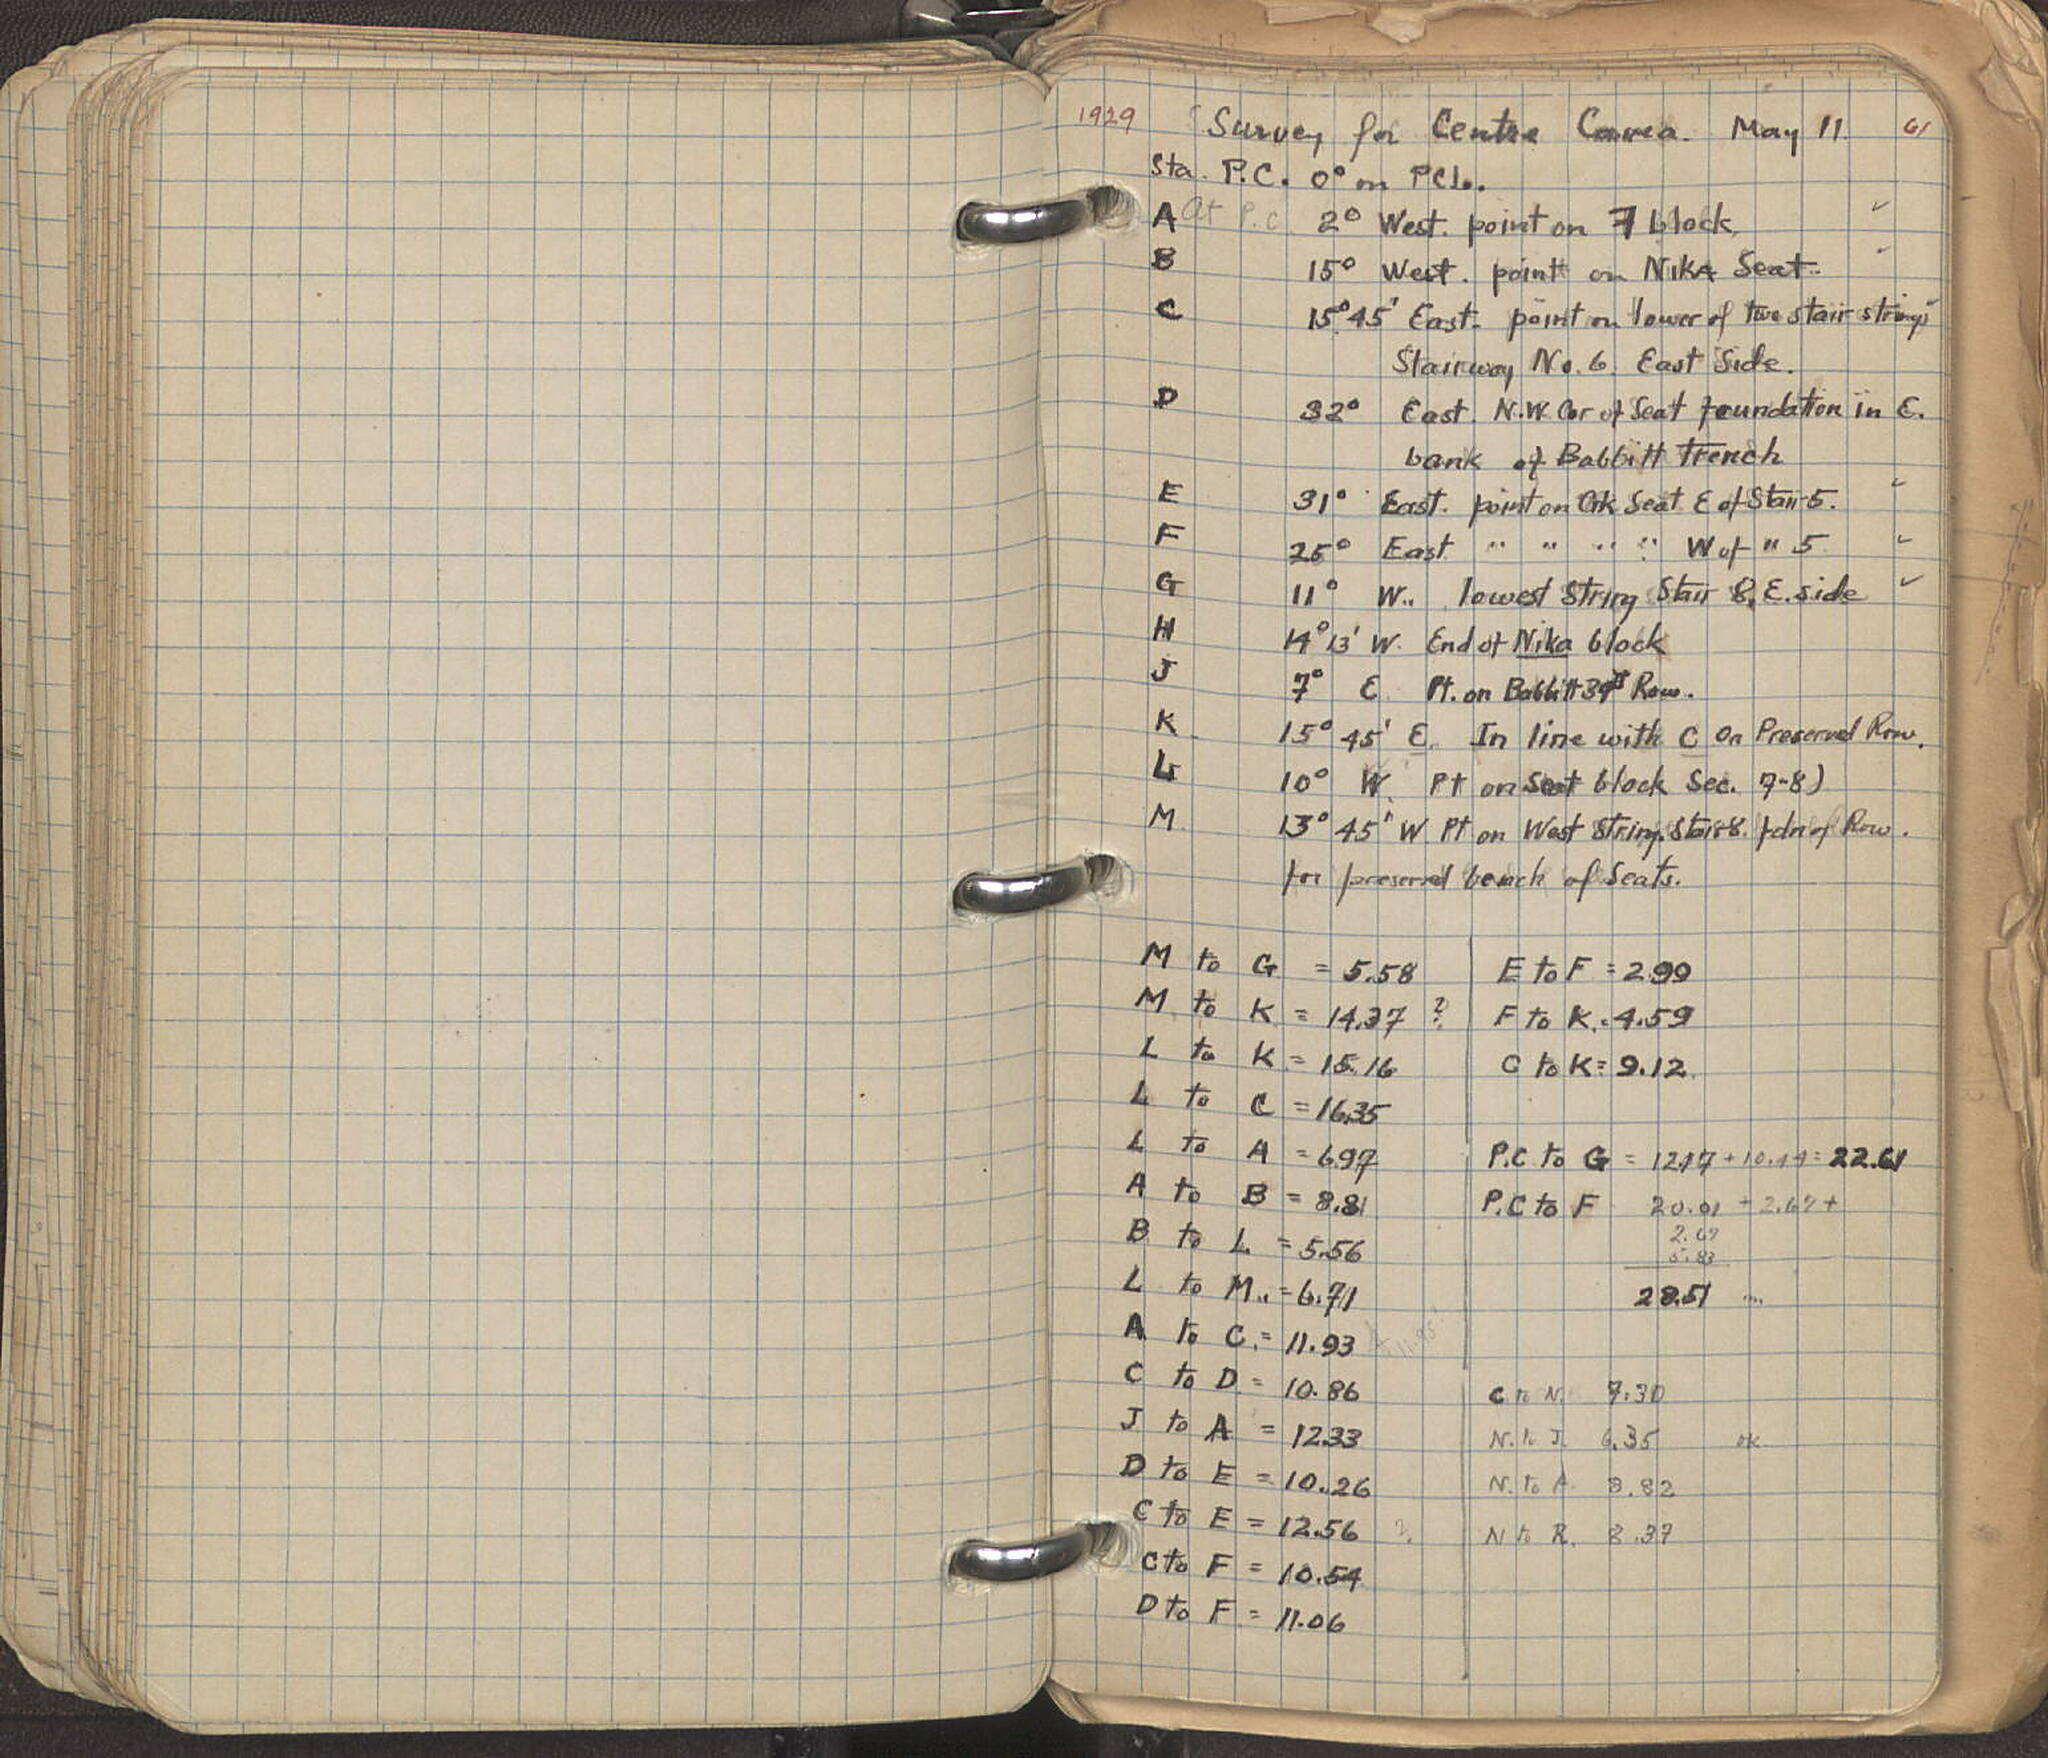 1929 Survey for Centre Cavea. May 11. 61
Sta. P.C. 0° on PCL.
A At P.C. 2° West. point on 7 block.
B 15° West. point on NIKA Seat.
C 15°45' East. point on lower of two stair strings
Stairway No. 6. East Side.
D 32° East. N.W. Cor of Seat foundation in E.
bank of Babbitt Trench
E 31° East. point on Gk Seat E of Stair 5.
F 25° East " " " " W of " 5
G 11° W. lowest String Stair 8, E. side
H 14°13' W. End of Nika block
J 7° E Pt. on Babbitt Row.
K 15° 45' E. In line with C on Preserved Row.
L 10° W. Pt on Seat block Sec. 7-8)
M. 13° 45' W. Pt on West String Stair 8. fdn of Row.
for preserved bench of Seats.
M to G = 5.58
M to K = 14.37 ?
L to K = 15.16
L to C = 16.35
L to A = 6.97
A to B = 8.81
B to L = 5.56
L to M = 6.71
A to C. = 11.93
C to D = 10.86
J to A = 12.33
D to E = 10.26
C to E = 12.56 ?
C to F = 10.54
D to F = 11.06
E to F = 2.99
F to K = 4.59
C to K = 9.12
P.C to G = 12.17 + 10.44 = 22.61
P.C to F 20.01 + 2.67 +
2.67
5.83
28.51
C to N. 7.30
N. to J. 6.35 ok
N. to A. 8.82
N to R. 8.37